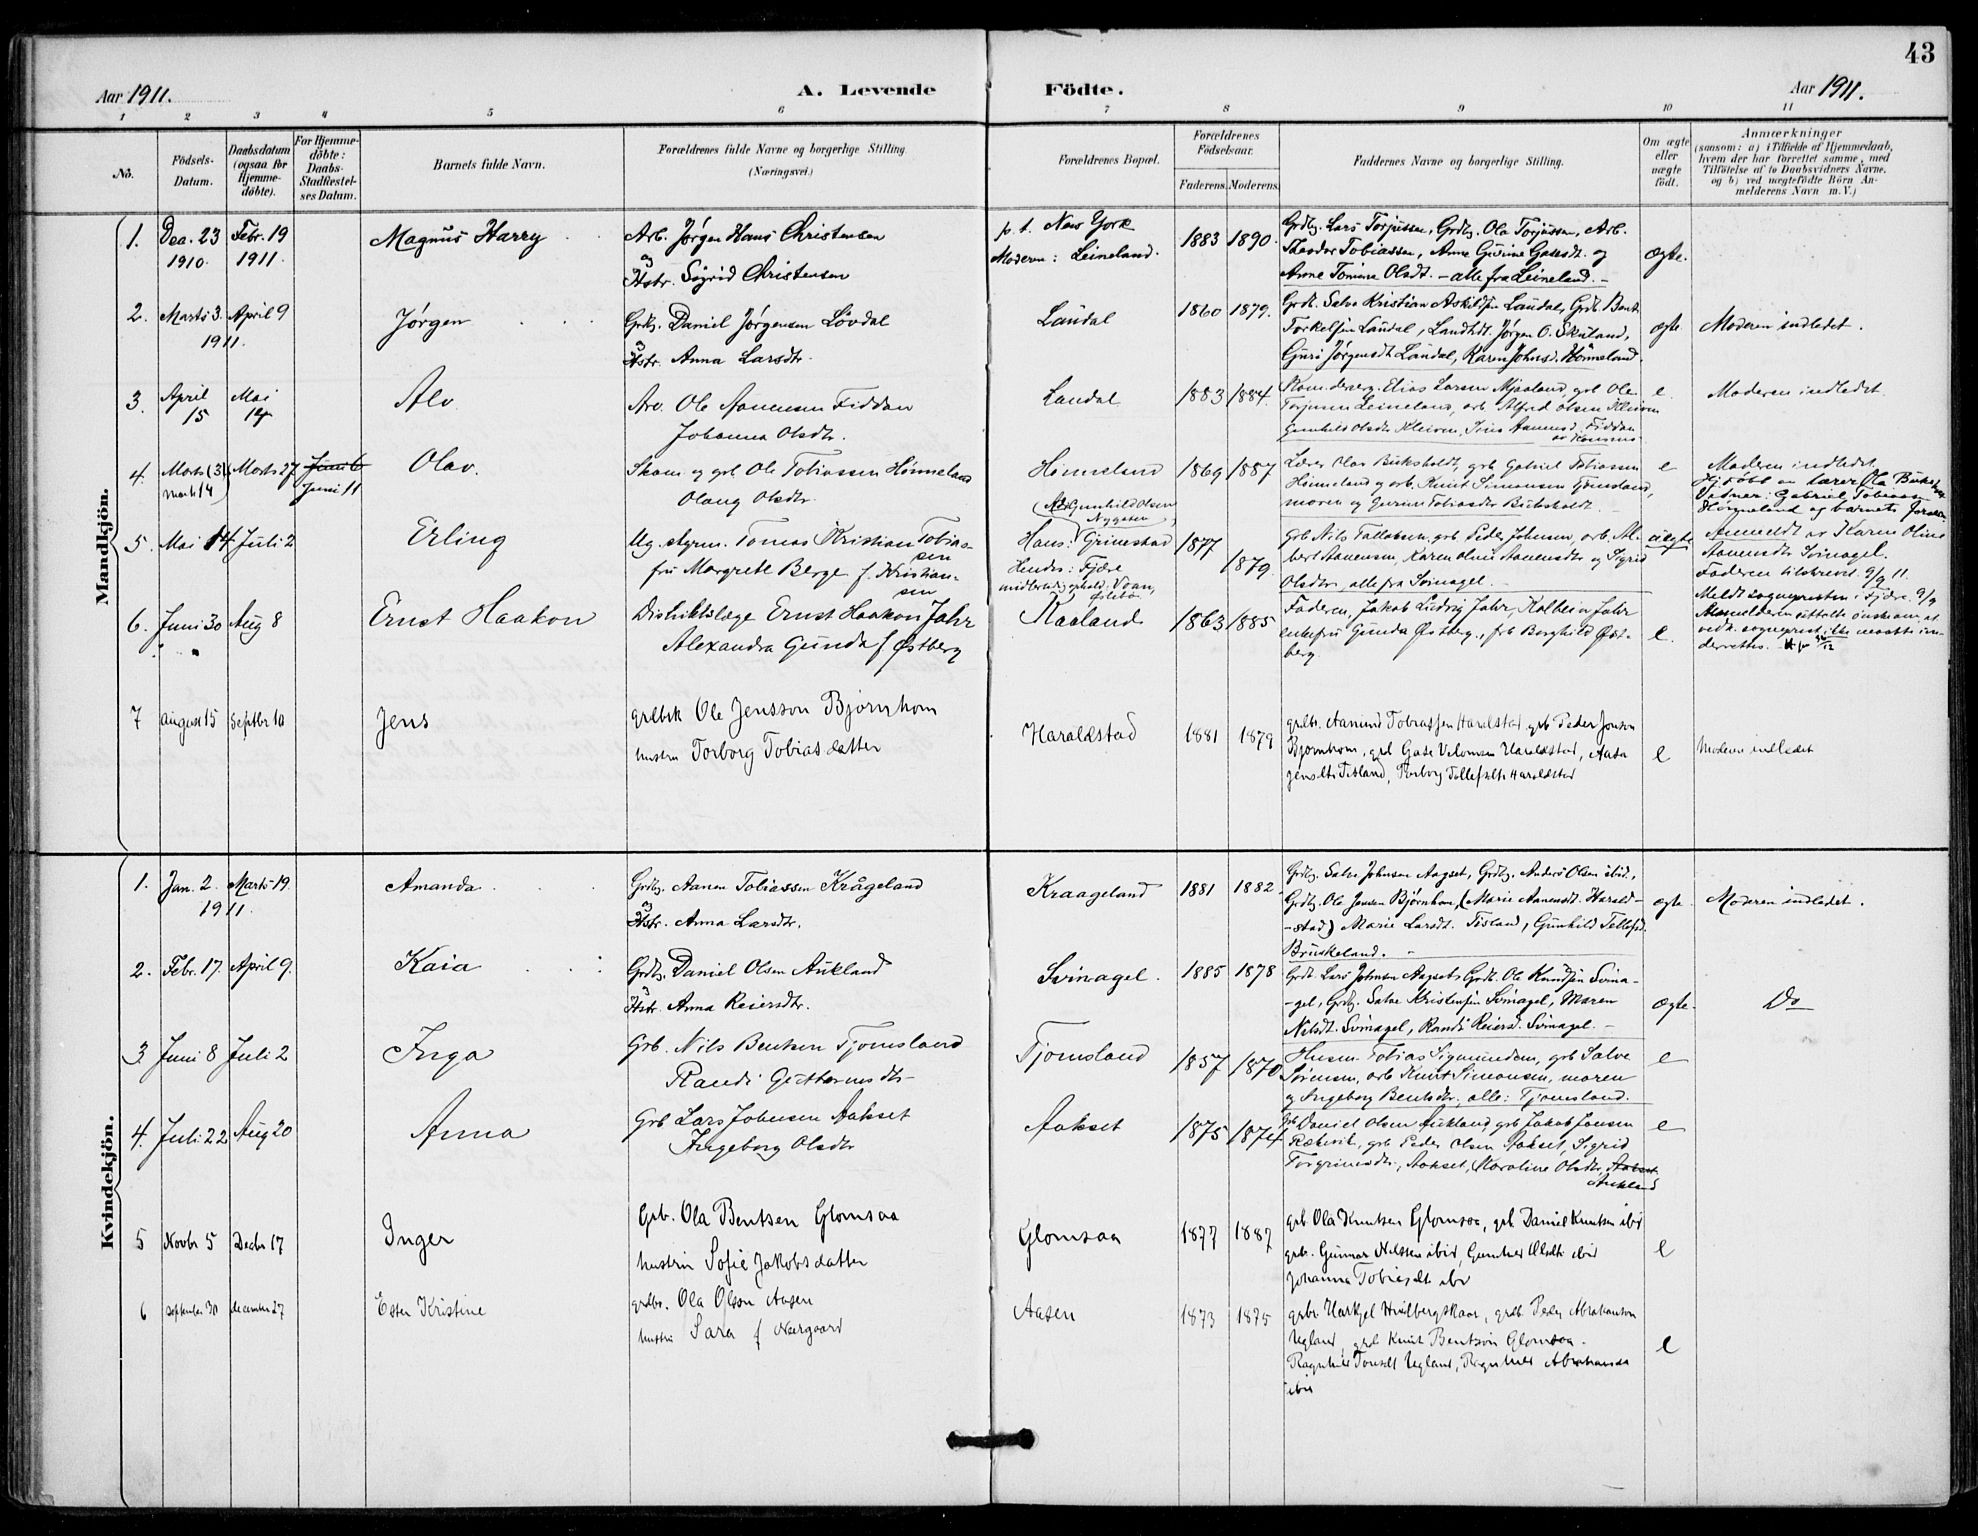 43
Aar 1911.
A. Levende Födte.
Aar 1911.
1 2 3 4 5 6 7 8 9 10 11
No.
Födsels-Datum.
Daabsdatum (ogsaa for Hjemmedöbte).
For Hjemmedöbte: Daabs-Stadfæstelses Datum.
Barnets fulde Navn.
Forældrenes fulde Navne og borgerlige Stilling (Næringsvei.)
Forældrenes Bopæl.
Forældrenes Födselsaar.
Faderens. Moderens.
Faddernes Navne og borgerlige Stilling.
Om ægte eller uægte födt.
Anmærkninger
(saasom: a) i Tilfælde af Hjemmedaab, hvem der har forrettet samme, med Tilföielse af to Daabsvidners Navne, og b) ved uægtefödte Börn Anmelderens Navn m. V.)
Mandkjön.
1. Dea. 23 1910. Febr. 19 1911. Magnus Harry
Arb. Jørgen Hans Christensen
og Hstr. Sigrid Christensen
p. t. New York
Moderen: Leineland.
1883 1890.
Grdbg. Lars Torjussen, Grdbg. Ola Torjussen, Arb.
Theodor Tobiassen, Anne Gurine og
Anne Tomine Olsdt. - alle fra Leineland. -
ægte.
2. Marts 3. 1911. April 9 Jørgen
Grdbg. Daniel Jørgensen Lövdal
og Hstr. Anna Larsdtr.
Laudal
1860 1879.
Grdb. Salve Kristian Askildsen Laudal, Grdb. Bent
Torkelsen Laudal, Jørgen O. Skuland,
Guri Jørgensdt. Laudal, Karen Johnsd. Hönneland.
ægte. Moderen indledet.
3. April 15 Mai 14 Alv.
Arb. Ole Aanensen Fiddan
Johanna Olsdtr.
Laudal
1883 1884.
Elias Larsen Mjaaland, grb. Ole
Torjussen Leineland, arb. Alfred Olsen Kleiven
Gunhild Olsdtr Kleiven, Aanensd. Fiddan
e. Moderen indledet.
4. Marts (3) Mars 14 Marts 27 Juni 6 Juni 11 Olav.
Skom. og grb. Ole Tobiassen Hönneland
Olaug Olsdtr.
Hönneland
1869 1887
Lærer Olav Buksholdt, grb. Gabriel Tobiassen
Hönneland og arb. Knut Simonsen Tjomsland,
moren og Gurine Tobiasdtr Buksholdt.
e Moderen indledet.
Hj. døbt av lærer Ola
Vidner: Gabriel Tobiassen
Hønneland og barnets
5. Mai 14 Juli 2 Erling
Ug. styrm. Tomas Kristian Tobiassen
fru Margrete Berge f. Kristiansen
Gunhild Olsen
Hans: Grimestad
Hendes: Fjære
1877
1879
grb. Nils Tallaksen, grb. Peder Johnsen, arb. Albert
Aanensen, Karen Oline Aanensdtr og Sigrid
Olsdtr, alle fra Svinagel. -
uægte
Anmeldt av Karen Oline
Aanensdtr Svinagel.
Faderen tilskrevet 9/9 11.
Meldt sognepresten i Fjære. 9/9
6. Juni 30 Aug 8 Ernst Haakon
Distriktslæge Ernst Haakon Jahr
Alexandra Gunda f. Østberg
Kaaland
1863 1885
Faderen, Jakob Ludvig Jahr, Kolbein Jahr
enkefru Gunda Østberg, frk Borghild Østberg
e.
7 August 15 Septbr 10 Jens
grdbrk Ole Jensson Bjørnhom
hustru Torborg Tobiasdatter
Haraldstad
1881 1879
grdbr. Aanund Tobiassen Haraldstad grb Peder Jonson
Bjørnhom, grd Gabe Haraldstad, Aasa
Jensdtr Tisland, Torborg Tollefsdtr Haraldstad
e Moderen indledet
Kvindekjön.
1. Jan. 2. 1911. Marts 19. Amanda
Grdbg. Aanen Tobiassen Krågeland
og Hstr. Anna Larsdtr.
Kraageland
1881 1882.
Grdbg. Salve Johnsen Aagset, Grdbg. Anders Olsen ibid.,
Grdbg. Ole Jensen Bjørnhom, (Marie Aanensdt. Harald-
-stad) Marie Larsdt. Tisland, Gunhild Tellefsd.
Bruskeland.
ægte. Moderen indledet.
2. Febr. 17. April 9. Kaia
Grdbg. Daniel Olsen Aukland
og Hstr. Anna Reiersdtr.
Svinagel.
1885 1878
Grdb. Lars Johnsen Aagset, Grdb. Ole Knudsen Svina-
-gel, Grdbg. Salve Kristensen Svinagel, Maren
Nilsdt. Svinagel, Randi Reiersd. Svinagel. -
ægte. Do
3 Juni 8 Juli 2 Inga
Grb. Nils Bentsen Tjomsland
Randi Guttormsdtr
Tjomsland
1857 1870
Husm. Tobias Sigmundsen, grb Salve
Sørensen, arb Knut Simonsen, moren
og Ingeborg Bentsdtr., alle: Tjomsland.
e
4. Juli 22 Aug 20 Anna
Grb Lars Johnsen Aakset
Ingeborg Olsdtr
Aakset
1875 1874
grb Daniel Olsen Aukland, grb Jakob Jonsen
grb Peder Olsen Aakset, Sigrid
Torgrimsdtr, Aakset, Karoline Olsdtr, Aakset
Aukland
e
5 Novbr 5 Decbr 17 Inger
Grb. Ola Bentsen Glomsaa
hustru Sofie Jakobsdatter
Glomsaa
1877 1887
grb. Ola Knutsen Glomsaa, grb. Daniel Knutsen ibid
grb. Gunnar Nilssen ibid, Gunhild Olsdtr ibid
Johanna Tobiasdt ibid
e
6 September 30 december 27 Ester Kristine
grdbr. Ola Olson Aasen
hustru Sara f Nærgaard
Aasen
1873 1875
grbr. Tarkjel Hvilbergskaar, grdb. Peder Abrahamson
Ugland, grd Knut Bentson Glomsaa.
Ragnhild Ugland, Ragnhild Abrahamsd
ibid
e